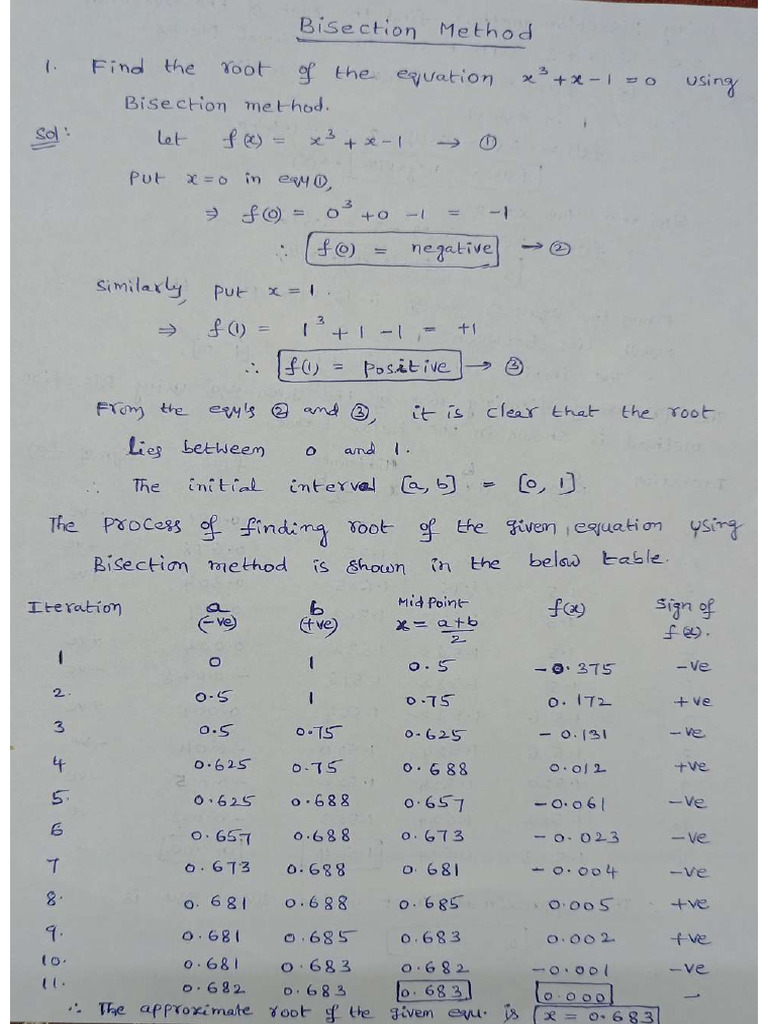 Bisection Method
1. Find the root of the equation x³+x-1=0 using
Bisection method.
Sol: Let f(x) = x³+x-1 → ①
Put x=0 in equ①,
⇒ f(0) = 0³+0-1 = -1
∴ f(0) = negative → ②
Similarly, put x=1.
⇒ f(1) = 1³+1-1 = +1
∴ f(1) = positive → ③
From the equ's ② and ③, it is clear that the root
lies between 0 and 1.
∴ The initial interval [a, b] = [0, 1].
The process of finding root of the given equation using
Bisection method is shown in the below table.
Iteration a (-ve) b (+ve) Midpoint x = a+b/2 f(x) Sign of f(x).
1 0 1 0.5 -0.375 -ve
2. 0.5 1 0.75 0.172 +ve
3 0.5 0.75 0.625 -0.131 -ve
4 0.625 0.75 0.688 0.012 +ve
5. 0.625 0.688 0.657 -0.061 -ve
6 0.657 0.688 0.673 -0.023 -ve
7 0.673 0.688 0.681 -0.004 -ve
8. 0.681 0.688 0.685 0.005 +ve
9. 0.681 0.685 0.683 0.002 +ve
10. 0.681 0.683 0.682 -0.001 -ve
11. 0.682 0.683 0.683 0.000 -
∴ The approximate root of the given equ. is x = 0.683